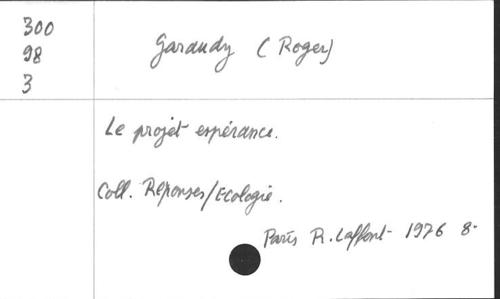 300
98
3
Garaudy (Roger)
Le projet espérance.
Coll. Réponses/Ecologie.
Paris R. Laffont 1976 8°